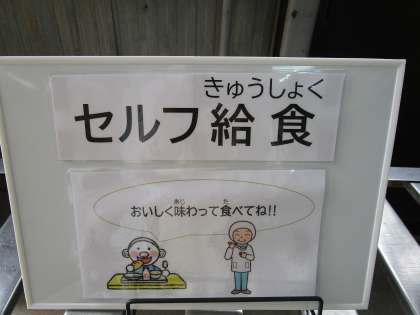 きゅうしょく
セルフ給食
あじ た
おいしく味わって食べてね!!